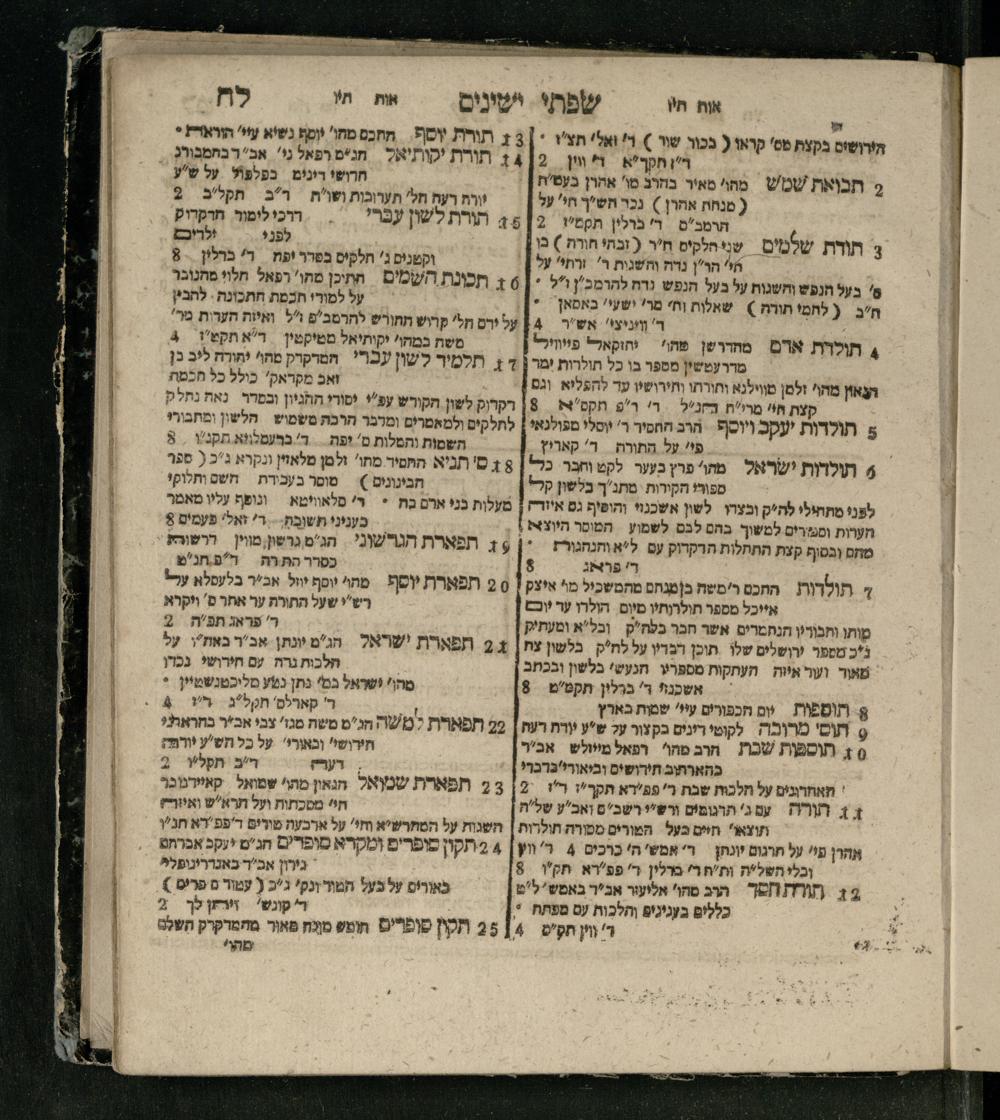 אות תיו
שפתי ישינים
אות תיו
לח
חידושים בקצת מס' קראו ( בכור שור ) ד' זאל' תצ"ו •
ד"ז תקך"א ד' ווין 2
2 תבואת שמש מהו' מאיר בהרב מו' אהרן בעמ"ח
( מנחת אהרן ) נכד הש"ך חי' על
הרמב"ם ד' ברלין תקמ"ז 2
3 תודת שלמים שני חלקים ח"ר ( זבחי תודה ) בו
חי' הר"ן נדה והשגות ר' זרחי' על
ס' בעל הנפש והשגות על בעל הנפש נדה להרמב"ן ז"ל •
ח"ב ( לחמי תודה ) שאלות וחי' מר' ישעי' באסאן •
ד' וויניצי' אש"ר 4
4 תולדת אדם מהדרשן מהו' יחזקאל פייוויל
מדרעטשין מספר בו כל תולדות ימר
הגאון מהו' זלמן מווילנא ותורתו וחידושיו עד להפליא וגם
קצת חי' מרי"ח הנ"ל ד' ר"פ תקס"א 8
5 תולדות יעקב ויוסף הרב החסיד ר' יוסלי מפולנאי
פי' על התורה ד' קאריץ
6 תולדות ישראל מהו' פרץ בעער לקט וחבר כל
ספורי הקורות מתנ"ך בלשון קל
לפני מתחילי לה"ק ובצדו לשון אשכנזי והוסיף גם איזה
הערות וספורים למשוך בהם לבם לשמוע המוסר היוצא
מהם ובסוף קצת התחלות הדקדוק עם ל"א והנהגות •
ד' פראג 8
7 תולדות החכם ר' משה בן מנחם מהמשכיל מו' איצק
אייכל מספר תולדותיו מיום הולדו עד יום
מותו וחבוריו הנחמדים אשר חבר בלה"ק ובל"א ומעתיק
ג"כ מספר ירושלים שלו תוכן דבריו על לה"ק בלשון צח
מאוד ועוד איזה העתקות מספריו הנעשי' בלשון ובכתב
אשכנזי ד' ברלין תקמ"ט 8
8 תוספות יום הכפורים עיי' שמות בארץ
9 תוסי מרובה לקוטי דינים בקצור על ש"ע יורה דעה
10 תוספות שבת הרב מהו' רפאל מייזלש אב"ד
בהארחוב חידושים וביאורי' בדברי
האחרונים על הלכות שבת ד' פפ"דא תקך"ז ד"ז 2
11 תורה עם ג' תרגומים ורש"י רשב"ם ואב"ע של"ה
תוצאי' חיים בעל הטורים מסורה תולדות
אהרן פי' על תרגום יונתן ד' אמש' ה' כרכים 4 ד' ווין
ובלי השל"ה ות"ח ד' ברלין ד' פפ"דא תק"ו 8
12 תורת חסד הרב מהו' אליעזר אב"ד באמש' ל"ט
כללים בענינים והלכות עם מפתח •
ד' ווין תק"ס 4
13 תורת יוסף החכם מהו' יוסף נשיא עיי' הוראת •
14 תורת יקותיאל הג"מ רפאל ני' אב"ד בהמבורג
חדושי דינים בפלפול על ש"ע
יורה דעה הל' תערובות ושו"ת ר"ב תקל"ב 2
15 תורת לשון עברי דרכי לימוד הדקדוק
לפני ילדים
וקטנים ג' חלקים בסדר יפה ד' ברלין 8
16 תכונת השמים התיכן מהו' רפאל הלוי מהנובר
על למודי חכמת התכונה להבין
על ידם הל' קדוש החודש להרמב"פ ז"ל ואיזה הערות מר'
משה במהו' יקותיאל מטיקטין ד"א תקט"ז 4
17 תלמיד לשון עברי המדקדק מהו' יהודה ליב בן
זאב מקראק' כולל כל חכמת
דקדוק לשון הקודש עפ"י יסודי ההגיון ובסדר נאה נחלק
לחלקים ולמאמרים ומדבר הרבה משמוש הלשון ומחבורי
השמות והמלות ס' יפה ד' ברעסלויא תקנ"ו 8
18 ס' תניא החסיד מהו' זלמן מלאזין ונקרא ג"כ ( ספר
הבינונים ) מוסר בעבודת השם וחלוקי
מעלות בני אדם בה • ד' סלאוויטא ונוסף עליו מאמר
בעניני תשובה ד' זאל' פעמים 8
19 תפארת הגרשוני הג"מ גרשון מווין דרשות
כסדר התרה ד"פ תנ"ט
20 תפארת יוסף מהו' יוסף יוזל אב"ד בלעסלא על
רש"י שעל התורה עד אחר ס' ויקרא
ד' פראג תפ"ה 2
21 תפארת ישראל הג"מ יונתן אב"ד באה"ו על
הלכות נדה עם חידושי נכדו
מהו' ישראל במ' נתן נטע מליכטנשטיין •
ד' קארלס' תקל"ג ד"ז 4
22 תפארת למשה הג"מ משה מגז' צבי אב"ד בהראדני
חידושי' ובאורי' על כל הש"ע יורה
דעה ר"ב תקל"ו 2
23 תפארת שמואל הגאון מהו' שמואל קאיידנובר
חי' מסכתות ועל הרא"ש ואיזה
השגות על המהרש"א וחי' על ארבעה טורים ד' פפ"דא תנ"ו
24 תקון סופרים ומקרא סופרים הג"מ יעקב אברהם
גירון אב"ד באנדרינופלי
באורים על בעל העטור ונק' ג"כ ( עטור סופרים )
ד' קונש' זירתן לך 2
25 תקון סופרים חומש מוגה מאוד מהמדקדק השלם
מהו'